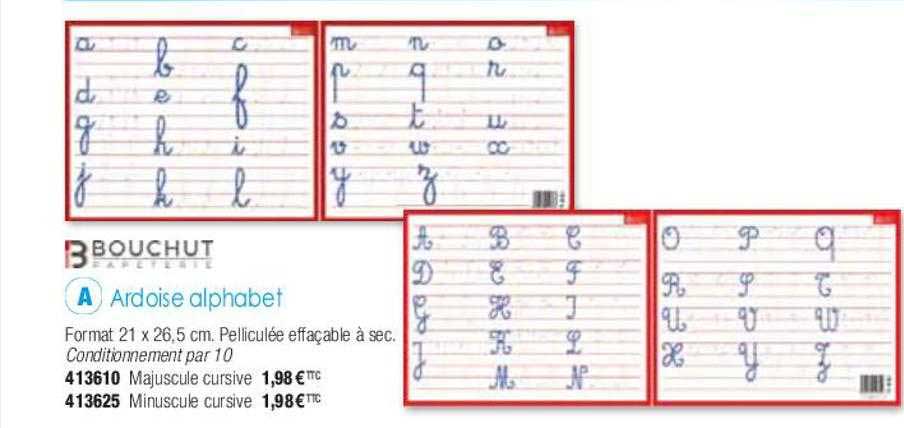 a b c
d e f
g h i
j k l
m n o
p q r
s t u
v w x
y z
BOUCHUT
PAPETERIE
A Ardoise alphabet
Format 21 x 26,5 cm. Pelliculée effaçable à sec.
Conditionnement par 10
413610 Majuscule cursive 1,98 € TTC
413625 Minuscule cursive 1,98€ TTC
A B C
D E F
G H I
J K L
M N
O P Q
R S T
U V W
X Y Z